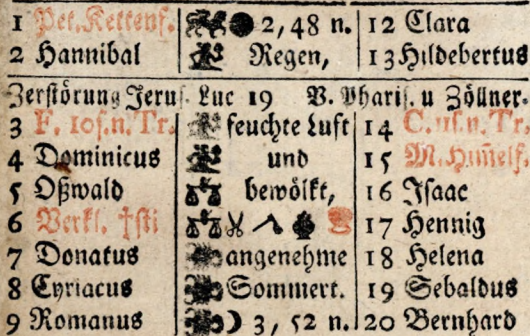 1 Pet. Kettenf. 2, 48 n. 12 Clara
2 Hannibal Regen, 13 Hildebertus
Zerstörung Jerus. Luc 19 V. Pharis. u Zöllner.
3 F. 10 s. n. Tr. feuchte Luft 14 C. 11 s. n. Tr.
4 Dominicus und 15 M. Him̃elf.
5 Oßwald bewölkt, 16 Isaac
6 Verkl. †sti 17 Hennig
7 Donatus angenehme 18 Helena
8 Cyriacus Sommert. 19 Sebaldus
9 Romanus ☽ 3, 52 n. 20 Bernhard